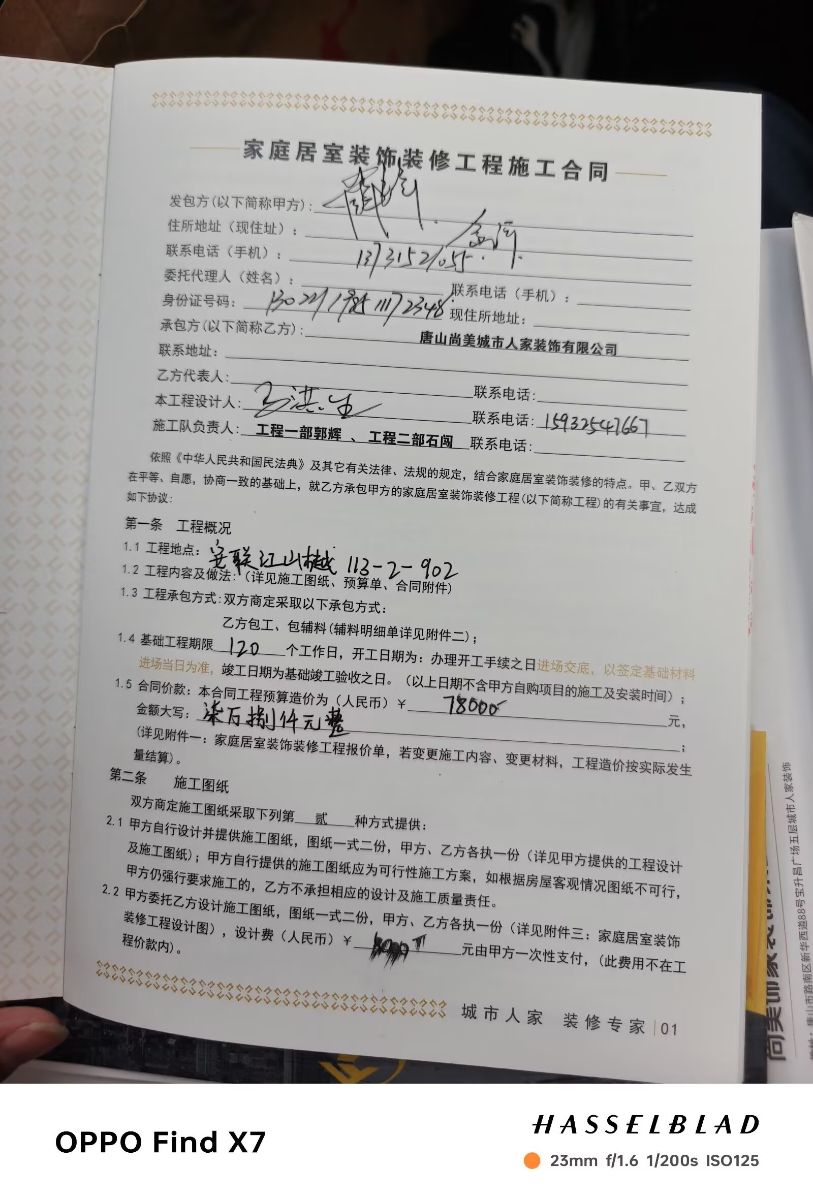 家庭居室装饰装修工程施工合同
发包方(以下简称甲方):
住所地址（现住址）:
联系电话（手机）: 13731521055.
委托代理人（姓名）: 联系电话（手机）:
身份证号码: 130221198511172348 现住所地址:
承包方(以下简称乙方): 唐山尚美城市人家装饰有限公司
联系地址:
乙方代表人: 联系电话:
本工程设计人: 联系电话: 15932547667
施工队负责人: 工程一部郭辉 、工程二部石闯 联系电话:
依照《中华人民共和国民法典》及其它有关法律、法规的规定，结合家庭居室装饰装修的特点。甲、乙双方
在平等、自愿，协商一致的基础上，就乙方承包甲方的家庭居室装饰装修工程(以下简称工程)的有关事宜，达成
如下协议:
第一条 工程概况
1.1 工程地点: 安联江山樾 113-2-902
1.2 工程内容及做法:（详见施工图纸、预算单、合同附件)
1.3 工程承包方式:双方商定采取以下承包方式:
乙方包工、包辅料(辅料明细单详见附件二);
1.4 基础工程期限 120 个工作日，开工日期为: 办理开工手续之日进场交底，以签定基础材料
进场当日为准，竣工日期为基础竣工验收之日。（以上日期不含甲方自购项目的施工及安装时间）;
1.5 合同价款: 本合同工程预算造价为（人民币）¥ 78000 元,
金额大写: 柒万捌仟元整 ;
(详见附件一: 家庭居室装饰装修工程报价单，若变更施工内容、变更材料，工程造价按实际发生
量结算)。
第二条 施工图纸
双方商定施工图纸采取下列第 贰 种方式提供:
2.1 甲方自行设计并提供施工图纸，图纸一式二份，甲方、乙方各执一份（详见甲方提供的工程设计
及施工图纸）; 甲方自行提供的施工图纸应为可行性施工方案，如根据房屋客观情况图纸不可行，
甲方仍强行要求施工的，乙方不承担相应的设计及施工质量责任。
2.2 甲方委托乙方设计施工图纸，图纸一式二份，甲方、乙方各执一份（详见附件三: 家庭居室装饰
装修工程设计图），设计费（人民币）¥ 元由甲方一次性支付，(此费用不在工
程价款内)。
城市人家 装修专家 01
尚美饰家装饰
唐山市路南区新华西道88号宝升昌广场五层城市人家装饰
OPPO Find X7
HASSELBLAD
23mm f/1.6 1/200s ISO125